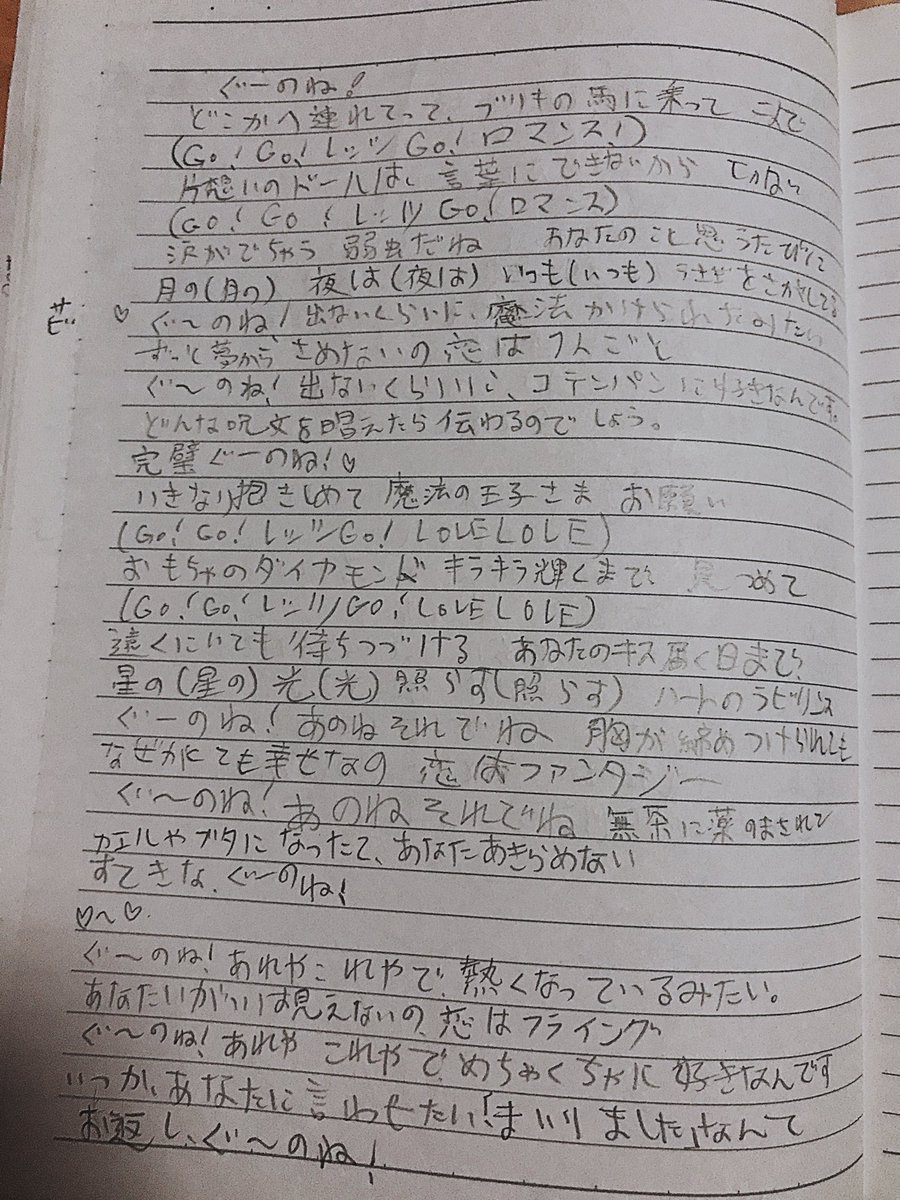 ぐーのね!
どこかへ連れてって、ブリキの馬に乗って 二人で
(Go! Go! レッツ Go! ロマンス!)
片想いのドールは、言葉にできないから せつない
(GO! GO! レッツ GO! ロマンス)
涙がでちゃう 弱虫だね あなたのこと思うたびに
月の(月の) 夜は(夜は) いつも(いつも) うさぎをさがしてる
サビ ♡ ぐ〜のね! 出ないくらいに、魔法かけられたみたい
ずっと夢から さめないの 恋は りんごと
ぐ〜のね! 出ないくらいに、コテンパンに好きなんです。
どんな呪文を唱えたら伝わるのでしょう。
完璧ぐーのね!♡
いきなり抱きしめて 魔法の王子さま お願い
(Go! Go! レッツGo! LOVELOVE)
おもちゃのダイヤモンド キラキラ輝くまで 見つめて
(Go! Go! レッツGO! LOVELOVE)
遠くにいても 待ちつづける あなたのキス届く日まで
星の(星の) 光(光) 照らす(照らす) ハートのラビリンス
ぐーのね! あのねそれでね 胸が締めつけられても
なぜかとても幸せなの 恋はファンタジー
ぐ〜のね! あのねそれでね 無茶に薬のまされて
カエルやブタになったて、あなたあきらめない
すてきな、ぐ〜のね!
♡〜♡.
ぐ〜のね! あれやこれやで、熱くなっているみたい。
あなたいがいは見えないの、恋はフライング
ぐ〜のね! あれや これやで、めちゃくちゃに 好きなんです
いつか、あなたに言わせたい「まいりました」なんて
お返し、ぐ〜のね!